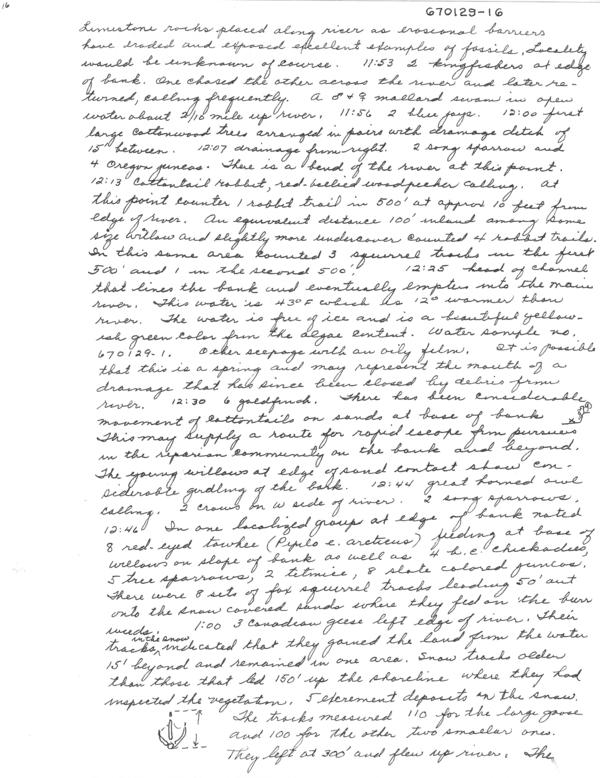 16
670129-16
Limestone rocks placed along river as erosional barriers
have eroded and exposed excellent examples of fossils. Locality
would be unknown of course. 11:53 2 kingfishers at edge
of bank. One chased the other across the river and later re-
turned, calling frequently. A ♂ + ♀ mallard swam in open
water about 2/10 mile up river. 11:56 2 blue jays. 12:00 first
large cottonwood trees arranged in pairs with drainage ditch of
15' between. 12:07 drainage from right. 2 song sparrow and
4 Oregon juncos. There is a bend of the river at this point.
12:13 Cottontail rabbit, red-bellied woodpecker calling. At
this point counter 1 rabbit trail in 500' at approx 10 feet from
edge of river. An equivalent distance 100' inland among some
size willow and slightly more undercover counted 4 rabbit trails.
In this same area counted 3 squirrel tracks in the first
500' and 1 in the second 500'. 12:25 head of channel
that lines the bank and eventually empties into the main
river. This water is 43°F which is 12° warmer than
river. The water is free of ice and is a beautiful yellow-
ish green color from the algae content. Water sample no.
670129-1. Other seepage with an oily film. It is possible
that this is a spring and may represent the mouth of a
drainage that has since been closed by debris from
river. 12:30 6 goldfinch. There has been considerable
movement of cottontails on sands at base of bank
This may supply a route for rapid escape from pursuers
in the riparian community on the bank and beyond.
The young willows at edge of sand contact show con-
siderable girdling of the bark. 12:44 great horned owl
calling. 2 crows on W side of river. 2 song sparrows.
12:46 In one localized group at edge of bank noted
8 red-eyed towhee (Pipilo e. arcticus) feeding at base of
willows on slope of bank as well as 4 b.c. chickadees,
5 tree sparrows, 2 titmice, 8 slate colored juncos.
There were 8 sets of fox squirrel tracks leading 50' out
onto the snow covered sands where they fed on the burr
weeds. 1:00 3 Canadian geese left edge of river. Their
tracks, in the snow, indicated that they gained the land from the water
15' beyond and remained in one area. Snow tracks older
than those that led 150' up the shoreline where they had
inspected the vegetation. 5 excrement deposits on the snow.
The tracks measured 110 for the large goose
and 100 for the other two smaller ones.
They left at 300' and flew up river. The